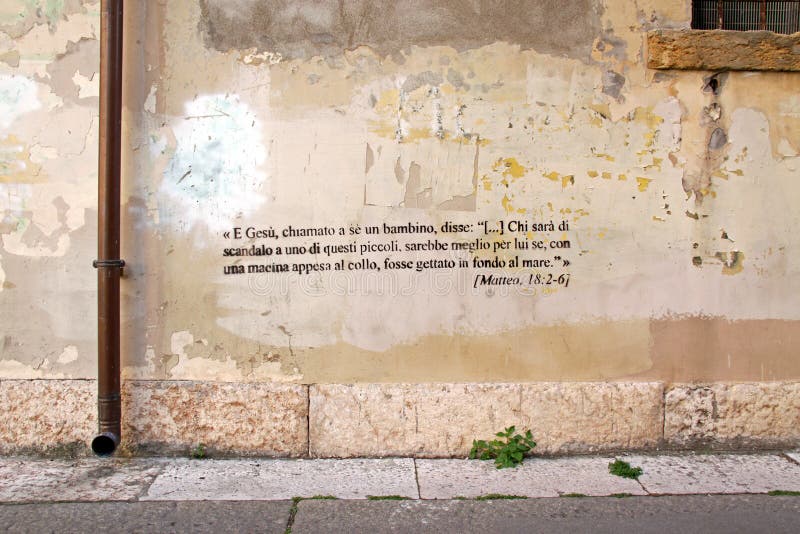 « E Gesù, chiamato a sè un bambino, disse: “[...] Chi sarà di
scandalo a uno di questi piccoli, sarebbe meglio per lui se, con
una macina appesa al collo, fosse gettato in fondo al mare.”»
[Matteo, 18:2-6]